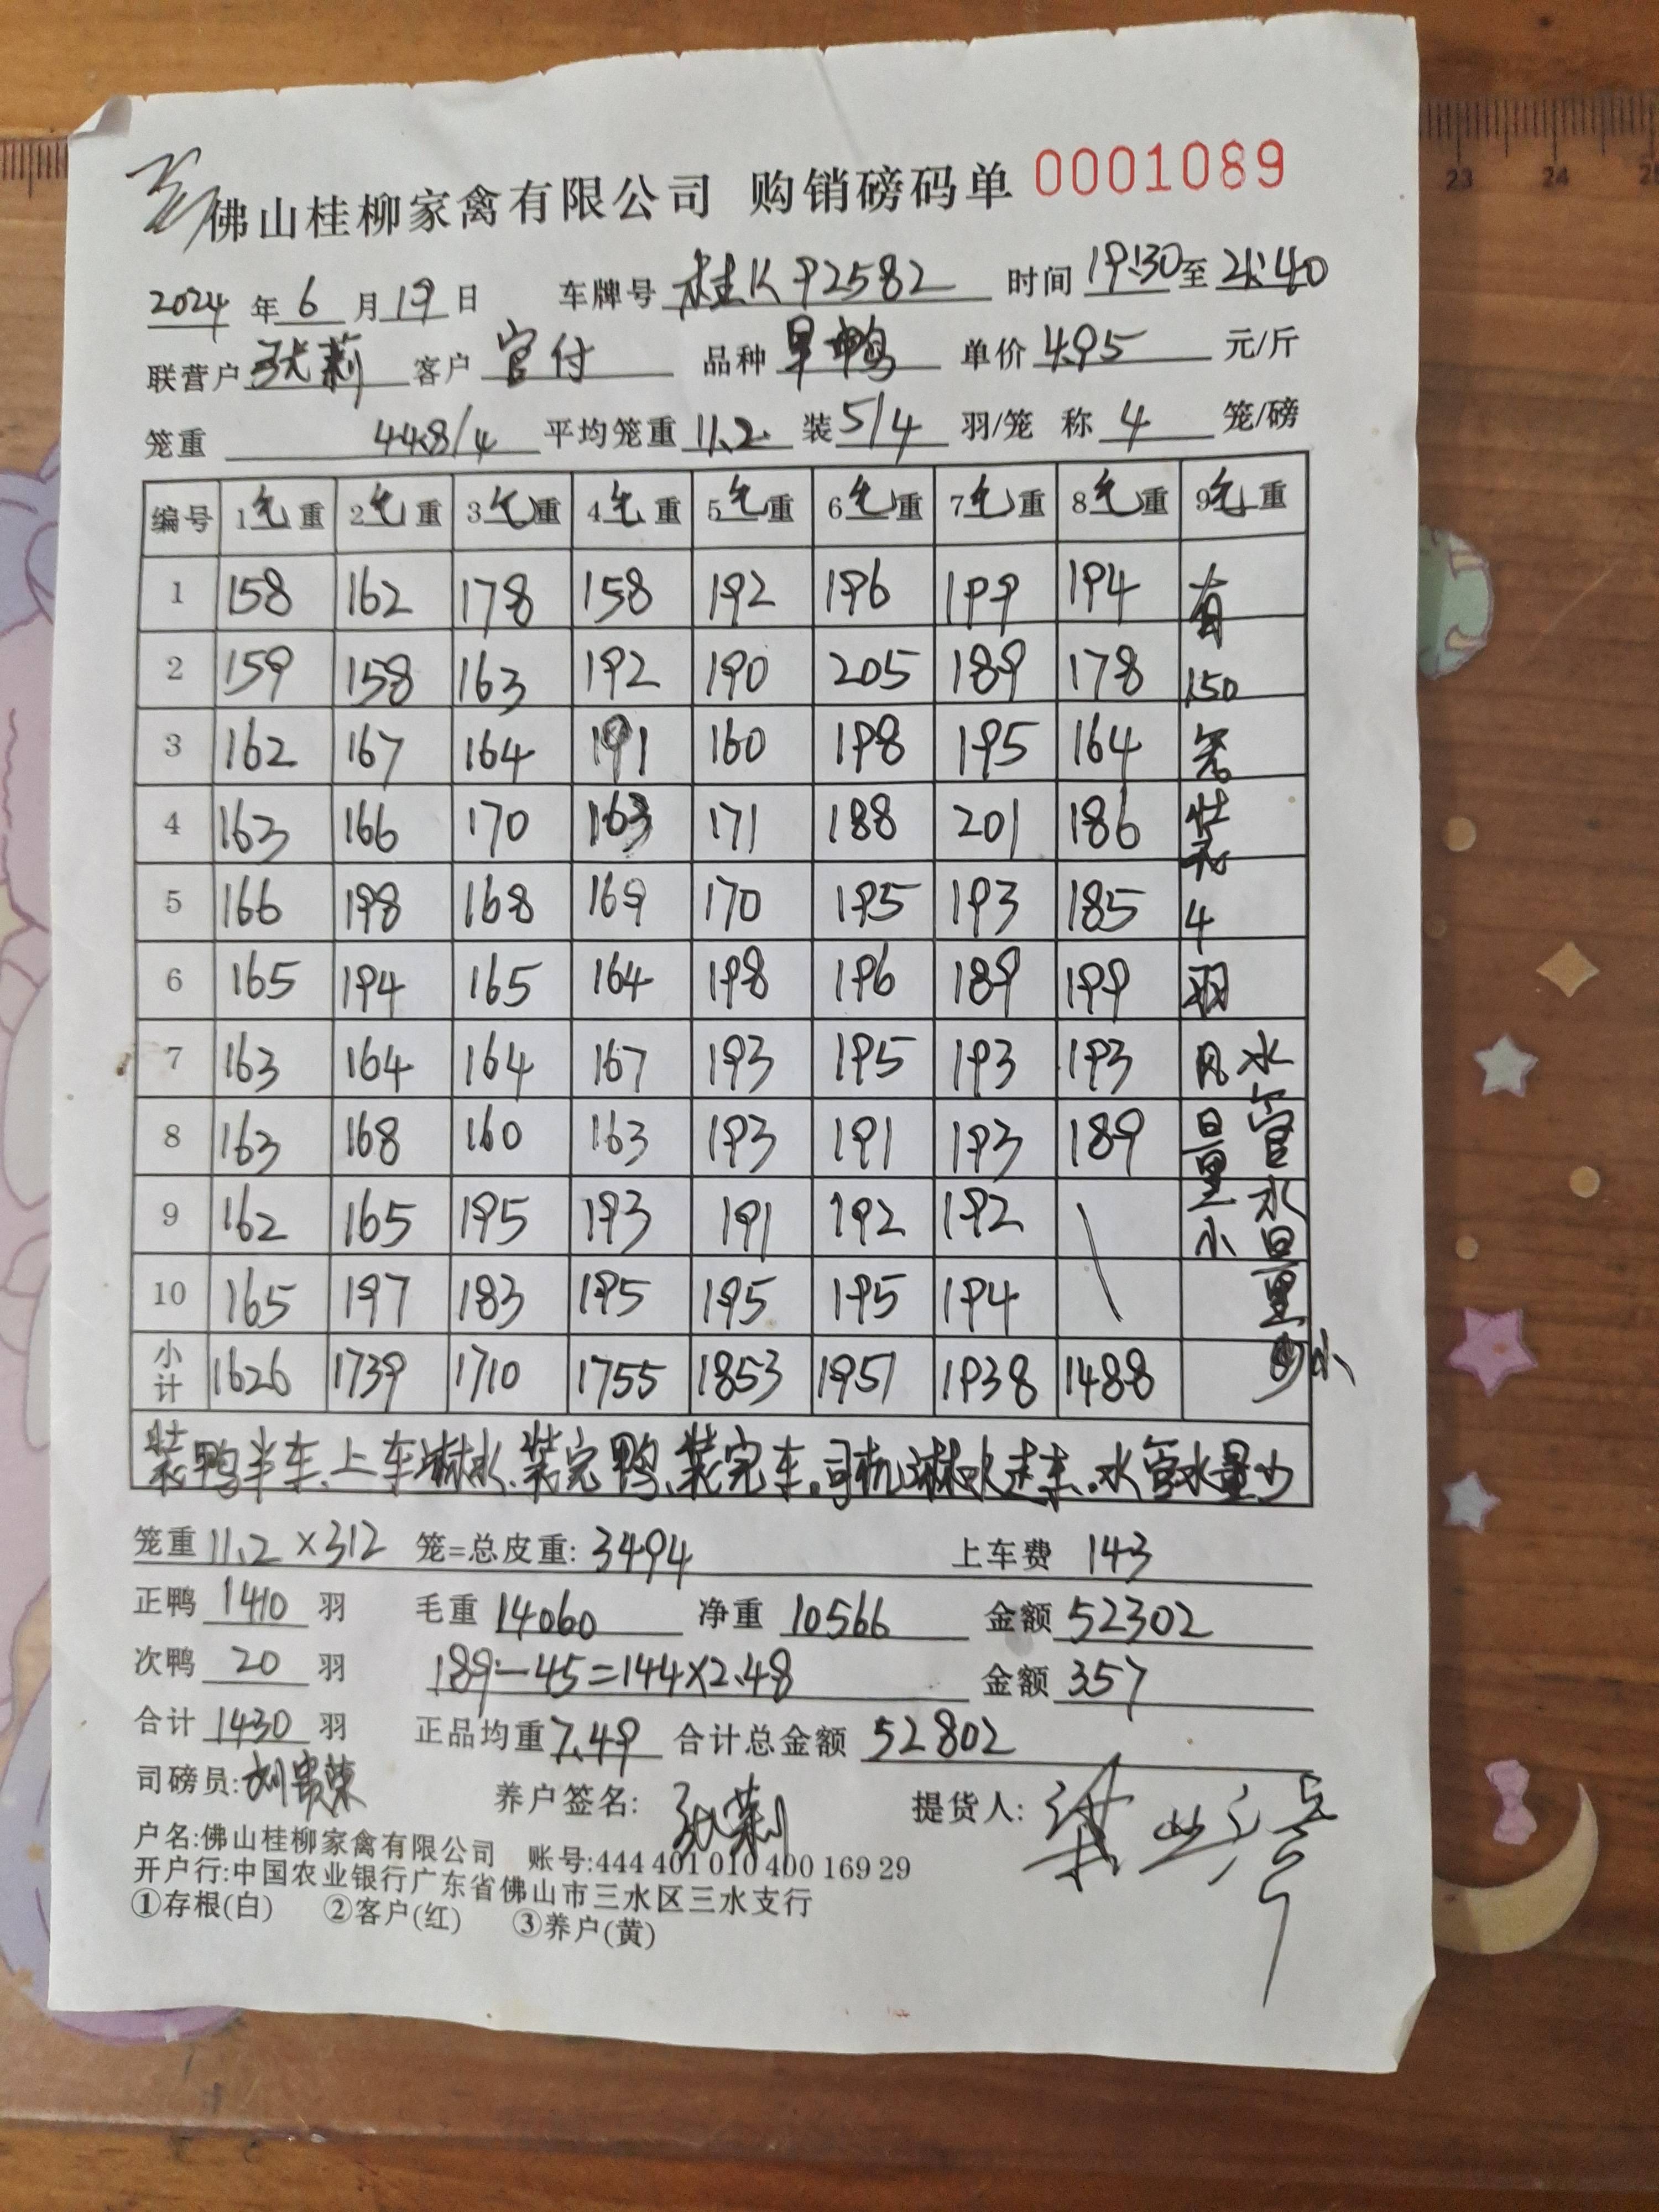 佛山桂柳家禽有限公司 购销磅码单 0001089
2024 年 6 月 19 日 车牌号 桂K92582 时间 19:30 至 21:40
联营户 张莉 客户 官付 品种 旱鸭 单价 4.95 元/斤
笼重 44.8/4 平均笼重 11.2 装 5/4 羽/笼 称 4 笼/磅
编号 1毛重 2毛重 3毛重 4毛重 5毛重 6毛重 7毛重 8毛重 9毛重
1 158 162 178 158 192 196 199 194 有
2 159 158 163 192 190 205 189 178 150
3 162 167 164 191 160 198 195 164 笼
4 163 166 170 163 171 188 201 186 装
5 166 198 168 169 170 195 193 185 4
6 165 194 165 164 198 196 189 199 羽
7 163 164 164 167 193 195 193 193 风 水
8 163 168 160 163 193 191 193 189 量 管
9 162 165 195 193 191 192 192 \ 小 水
10 165 197 183 195 195 195 194 量
小计 1626 1739 1710 1755 1853 1951 1938 1488 小
装鸭半车、上车淋水、装完鸭、装完车。司机淋水走车。水管水量少
笼重 11.2 × 312 笼=总皮重: 3494 上车费 143
正鸭 1410 羽 毛重 14060 净重 10566 金额 52302
次鸭 20 羽 189-45=144×2.48 金额 357
合计 1430 羽 正品均重 7.49 合计总金额 52802
司磅员: 刘贵荣 养户签名: 张莉 提货人:
户名:佛山桂柳家禽有限公司 账号:444 401 010 400 169 29
开户行:中国农业银行广东省佛山市三水区三水支行
①存根(白) ②客户(红) ③养户(黄)
23 24